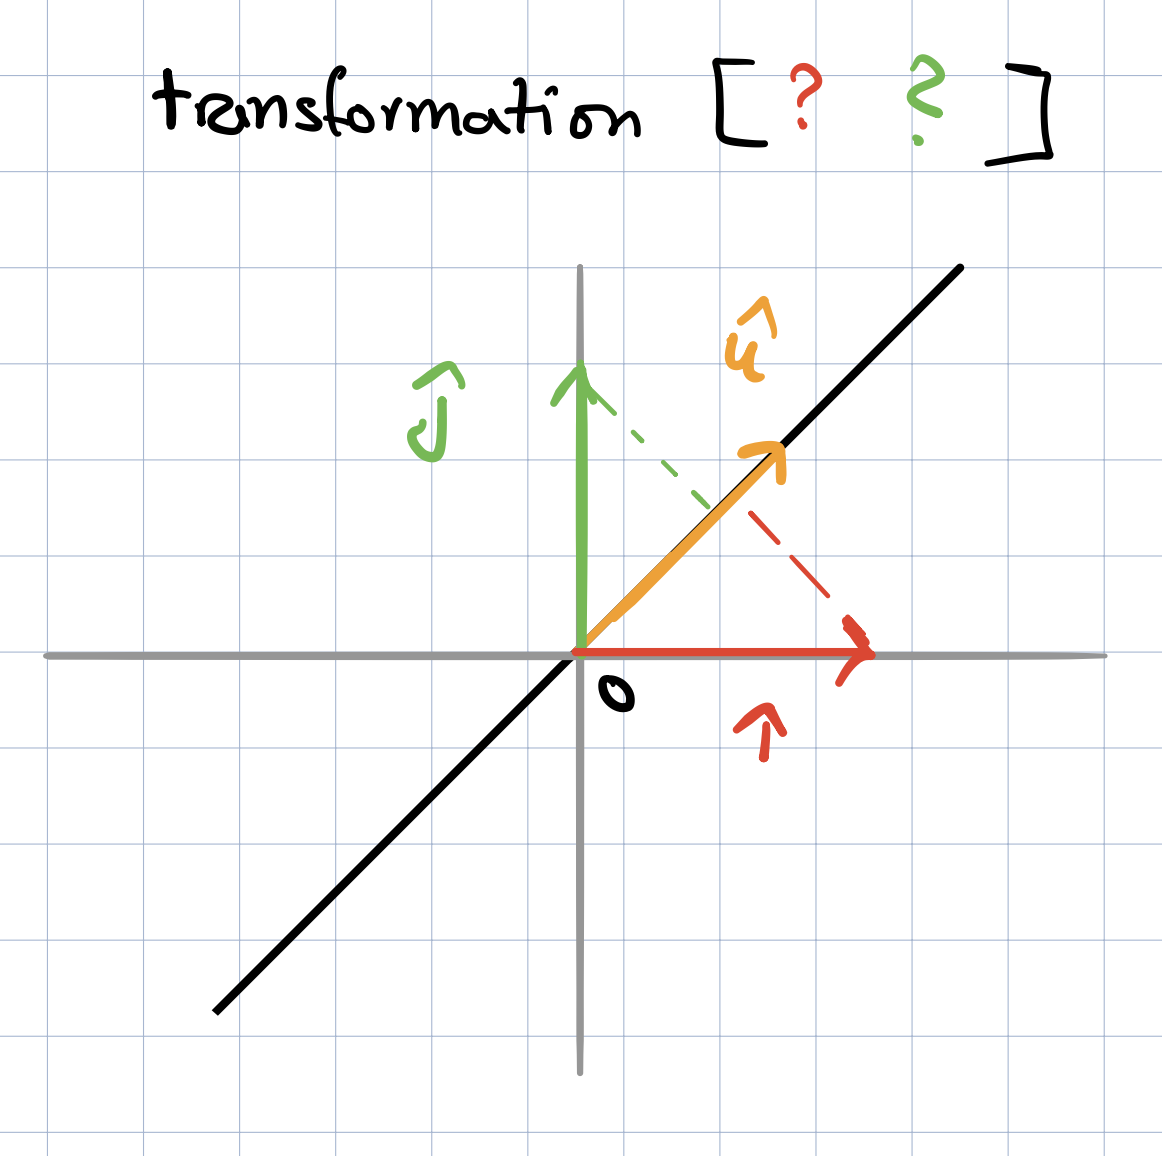 transformation [ ? ? ]
û
ĵ
0
î